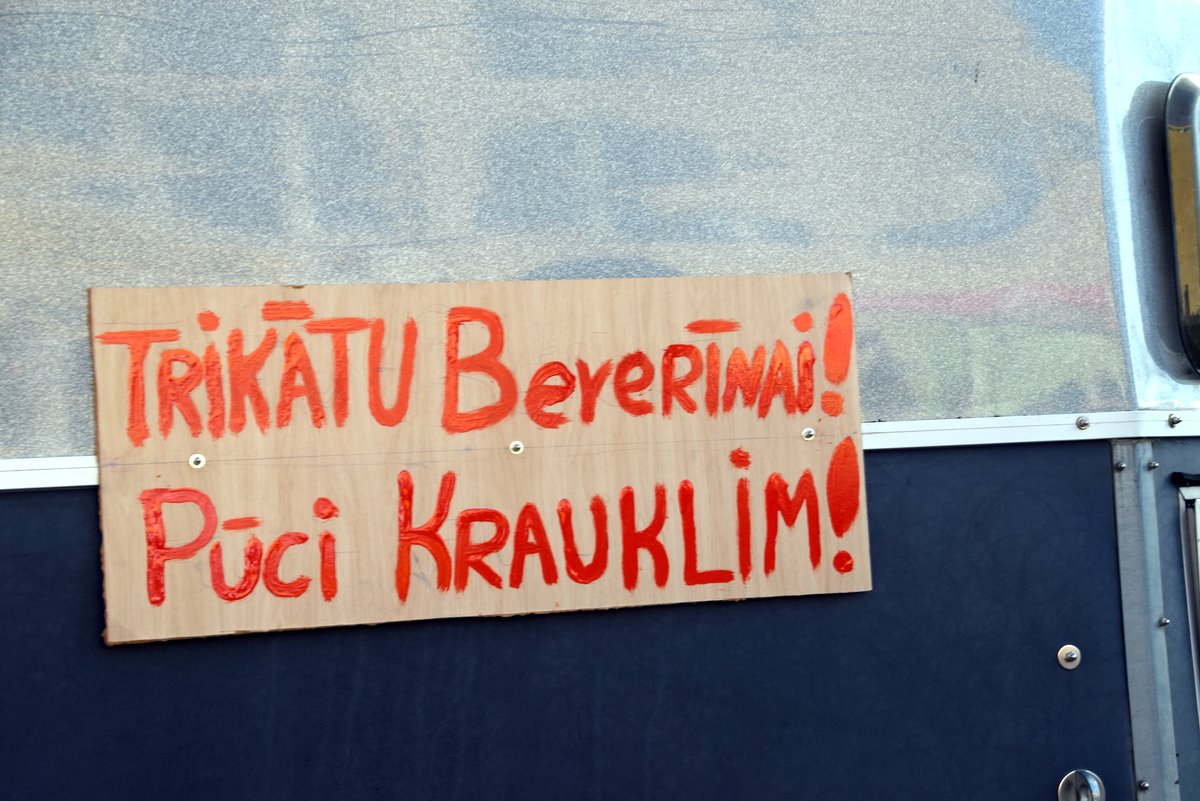 TRiKĀTU BeverīNAi!
Pūci KRAUKLiM!